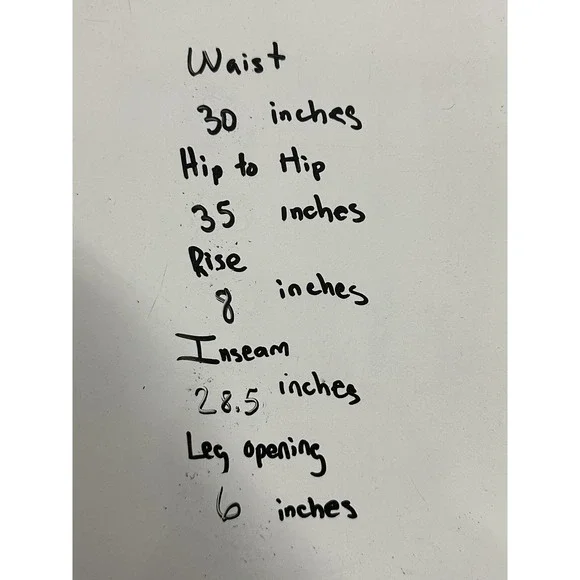 Waist
30 inches
Hip to Hip
35 inches
Rise
8 inches
Inseam
28.5 inches
Leg opening
6 inches